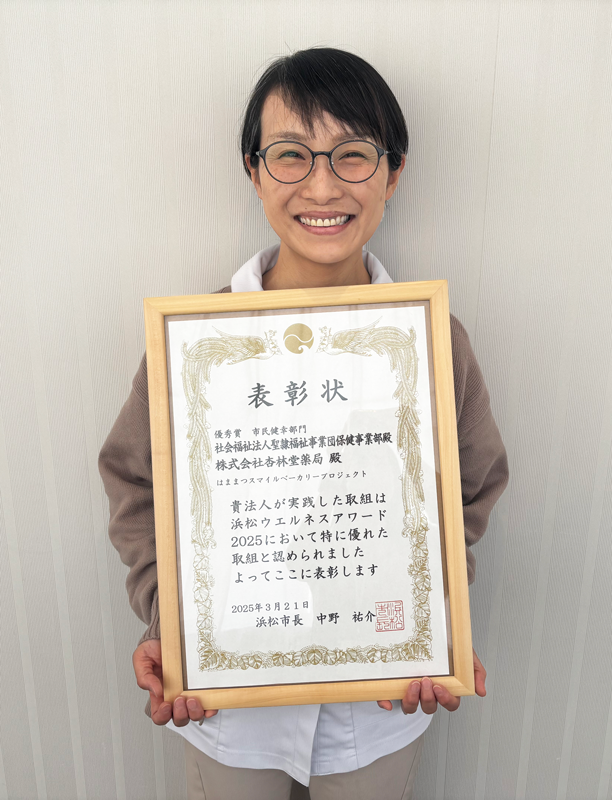 表彰状
優秀賞　市民健幸部門
社会福祉法人聖隷福祉事業団保健事業部殿
株式会社杏林堂薬局 殿
はままつスマイルベーカリープロジェクト
貴法人が実践した取組は
浜松ウエルネスアワード
2025において特に優れた
取組と認められました
よってここに表彰します
2025年3月21日
浜松市長　中野　祐介